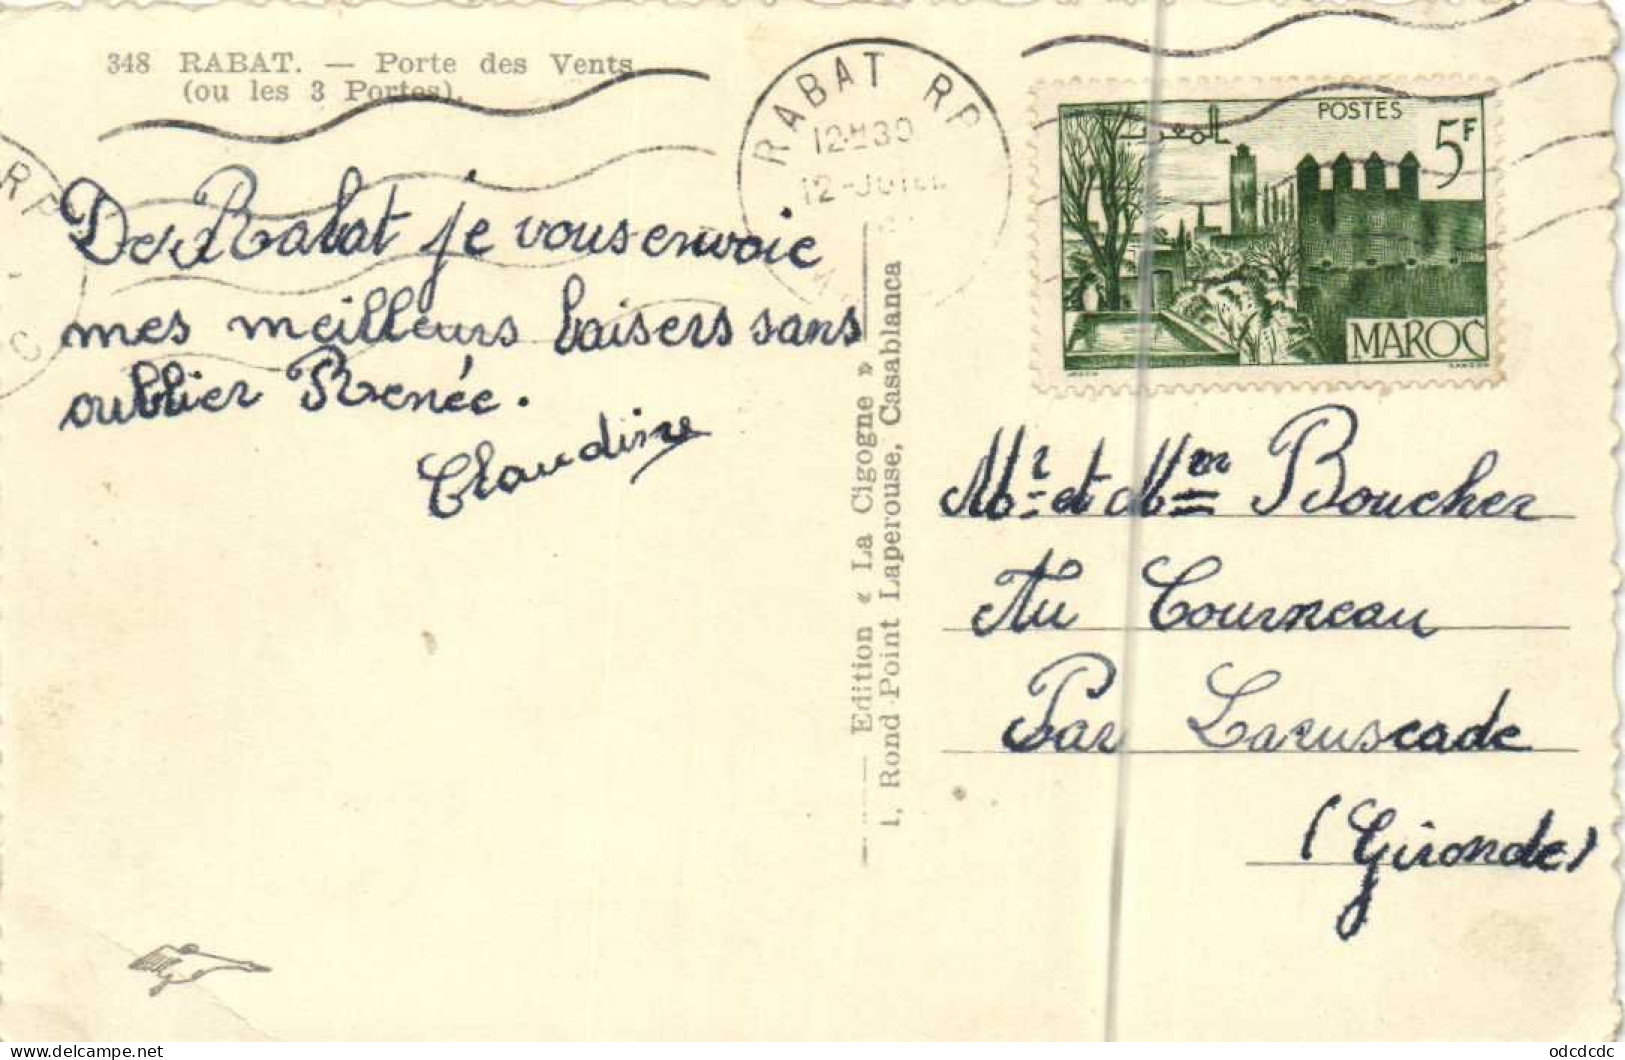 348 RABAT. — Porte des Vents
(ou les 3 Portes).
RABAT RP
12H30
12-JUIL
RP
C
POSTES
5F
المغرب
MAROC
De Rabat je vous envoie
mes meilleurs baisers sans
oublier Renée.
Claudine
Edition « La Cigogne »
1, Rond-Point Laperouse, Casablanca
Mr et Mm Boucher
Au Courneau
Par Laruscade
(Gironde)
odcdcdc